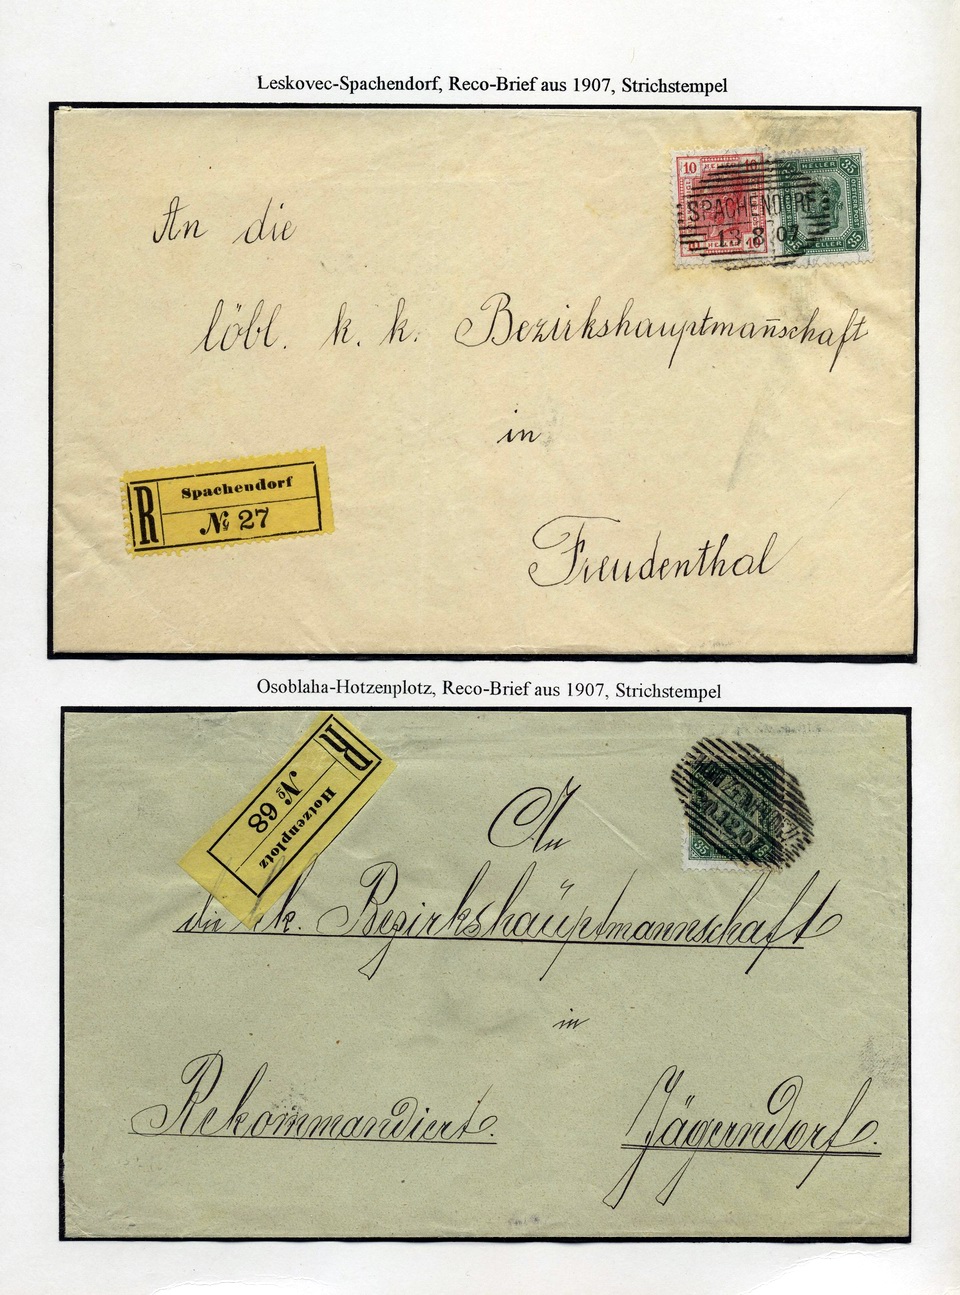 Leskovec-Spachendorf, Reco-Brief aus 1907, Strichstempel
10 HELLER 10
HELLER 35
SPACHENDORF
13 8 07
10 HELLER 10
35 HELLER 35
An die
löbl. k. k. Bezirkshauptmañschaft
in
Freudenthal
R Spachendorf
№ 27
Osoblaha-Hotzenplotz, Reco-Brief aus 1907, Strichstempel
R Hotzenplotz
№ 68
35
An
die k. Bezirkshauptmannschaft
in
Rekommandiert.
Jägerndorf.